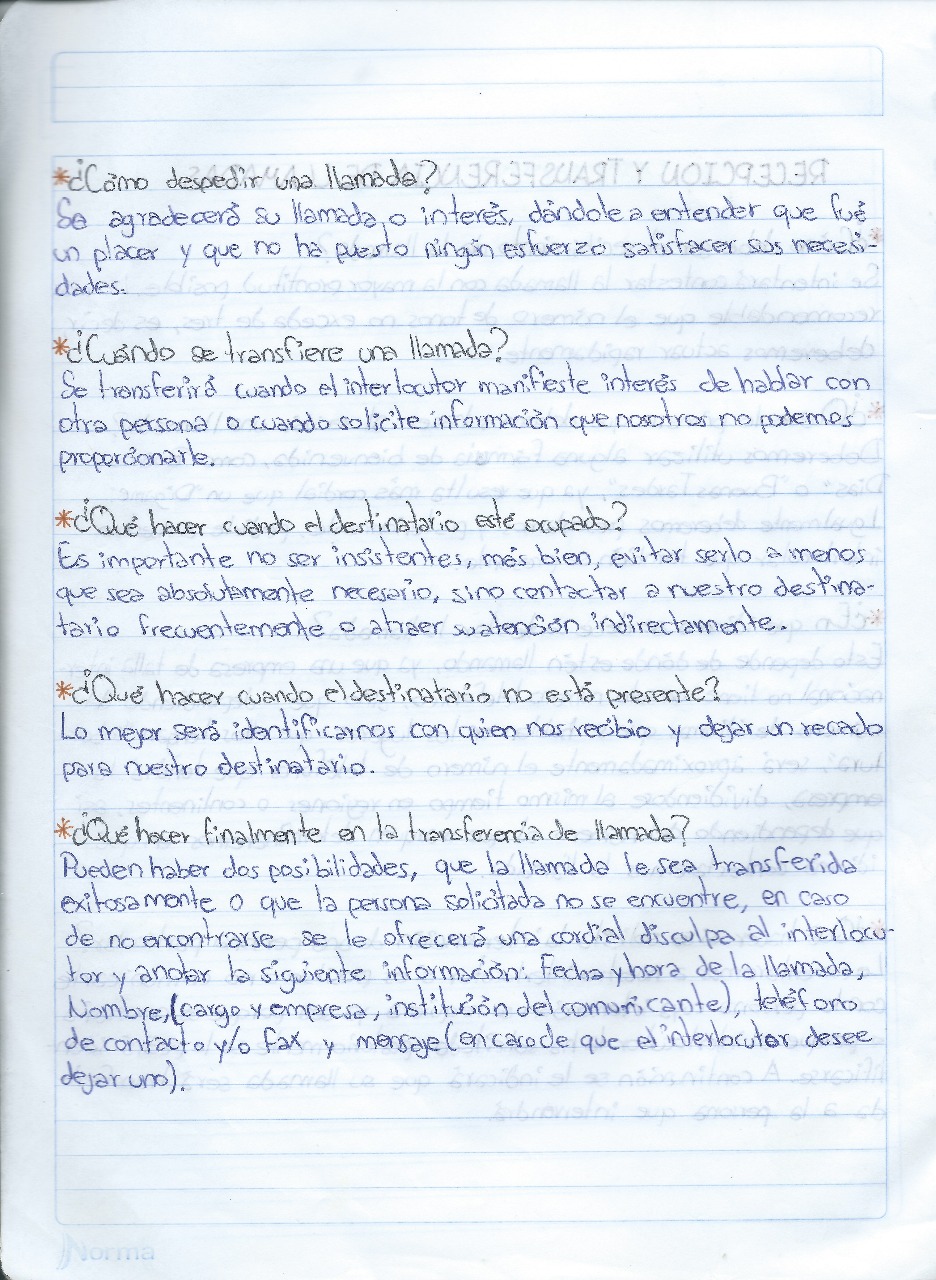 *¿Cómo despedir una llamada?
Se agradecerá su llamada o interés, dándole a entender que fué
un placer y que no ha puesto ningún esfuerzo satisfacer sus necesi-
dades.
*¿Cuándo se transfiere una llamada?
Se transferirá cuando el interlocutor manifieste interés de hablar con
otra persona o cuando solicite información que nosotros no podemos
proporcionarle.
*¿Qué hacer cuando el destinatario esté ocupado?
Es importante no ser insistentes, más bien, evitar serlo a menos
que sea absolutamente necesario, sino contactar a nuestro destina-
tario frecuentemente o atraer su atención indirectamente.
*¿Qué hacer cuando el destinatario no está presente?
Lo mejor será identificarnos con quien nos recibio y dejar un recado
para nuestro destinatario.
*¿Qué hacer finalmente en la transferencia de llamada?
Pueden haber dos posibilidades, que la llamada le sea transferida
exitosamente o que la persona solicitada no se encuentre, en caso
de no encontrarse se le ofrecerá una cordial disculpa al interlocu-
tor y anotar la siguiente información: Fecha y hora de la llamada,
Nombre, (cargo y empresa, institución del comunicante), teléfono
de contacto y/o fax y mensaje (en caso de que el interlocutor desee
dejar uno).
Norma